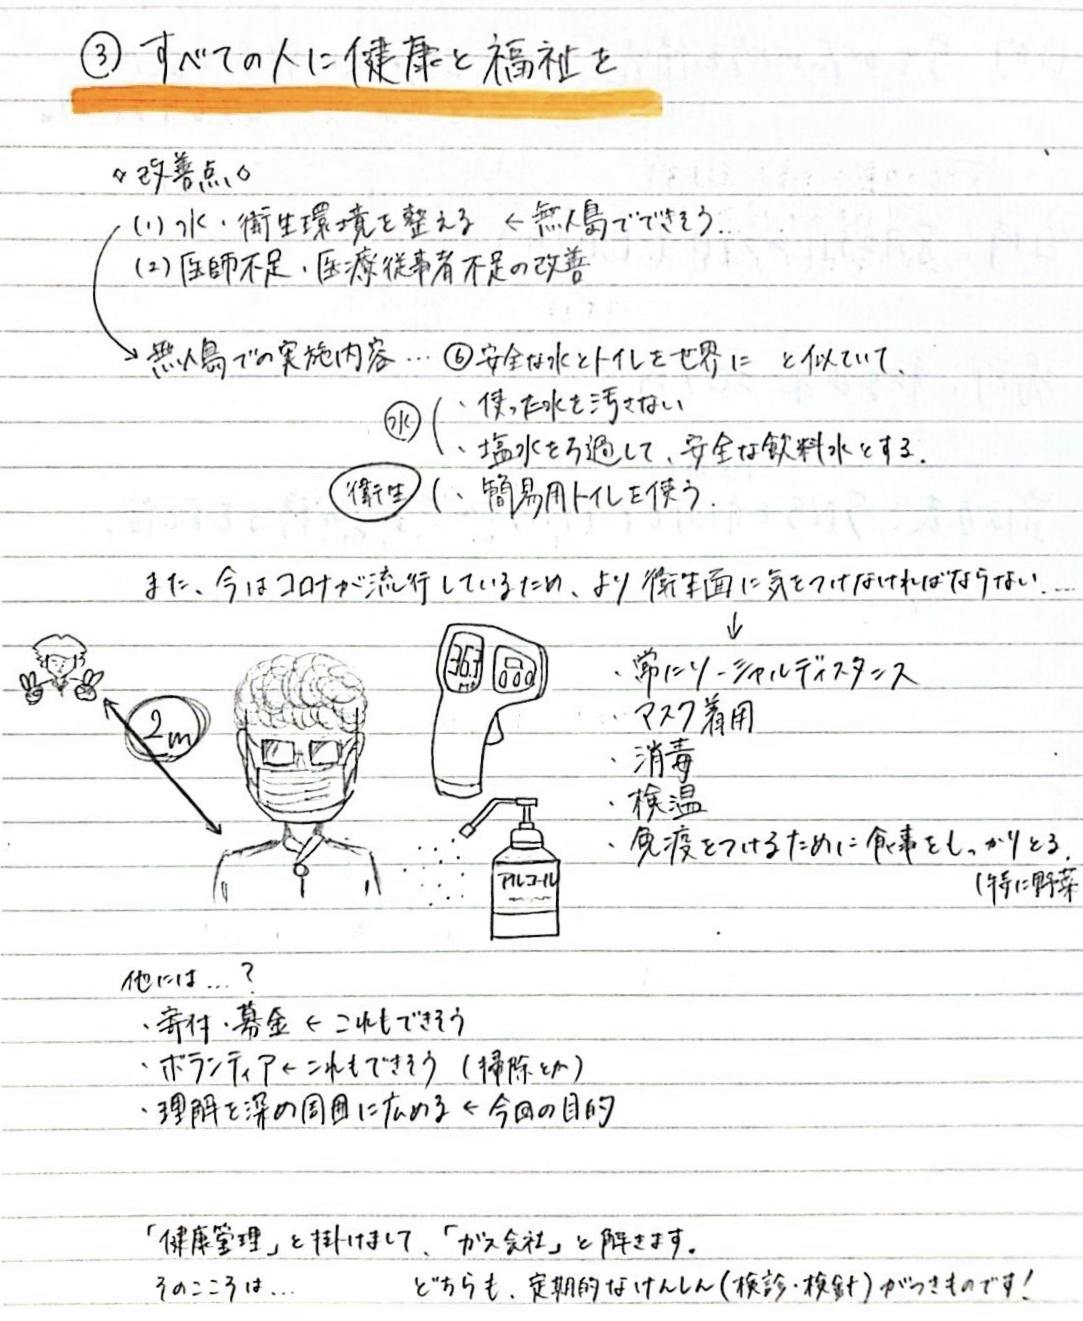 ③ すべての人に健康と福祉を
◇改善点◇
(1) 水・衛生環境を整える ← 無人島でできそう…
(2) 医師不足・医療従事者不足の改善
無人島での実施内容… ⑥安全な水とトイレを世界に と似ていて、
水
・使った水を汚さない
・塩水をろ過して、安全な飲料水とする.
衛生
・簡易用トイレを使う.
また、今はコロナが流行しているため、より衛生面に気をつけなければならない….
↓
・常にソーシャルディスタンス
・マスク着用
・消毒
・検温
・免疫をつけるために食事をしっかりとる.
(特に野菜
2m
36.3
アルコール
他には…?
・寄付・募金 ← これもできそう
・ボランティア ← これもできそう (掃除とか)
・理解を深め周囲に広める ← 今回の目的
「健康管理」と掛けまして、「ガス会社」と解きます。
そのこころは… どちらも、定期的なけんしん(検診・検針)がつきものです!